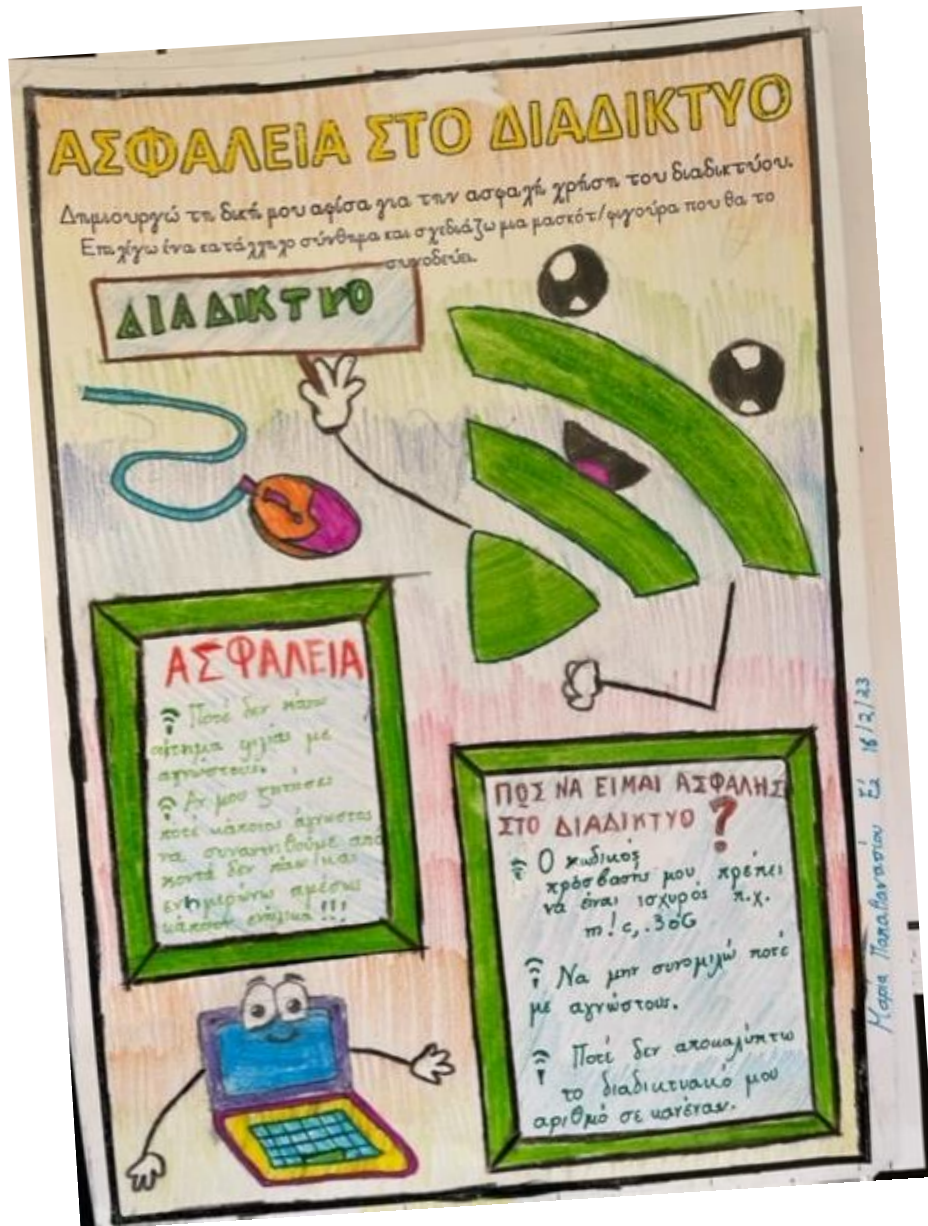 ΑΣΦΑΛΕΙΑ ΣΤΟ ΔΙΑΔΙΚΤΥΟ
Δημιουργώ τη δική μου αφίσα για την ασφαλή χρήση του διαδικτύου.
Επιλέγω ένα κατάλληλο σύνθημα και σχεδιάζω μια μασκότ/φιγούρα που θα το
συνοδεύει.
ΔΙΑΔΙΚΤΥΟ
ΑΣΦΑΛΕΙΑ
Ποτέ δεν κάνω
αίτημα φιλίας με
αγνώστους.
Αν μου ζητήσει
ποτέ κάποιος άγνωστος
να συναντηθούμε από
κοντά δεν πάω και
ενημερώνω αμέσως
κάποιον ενήλικα!!!
ΠΩΣ ΝΑ ΕΙΜΑΙ ΑΣΦΑΛΗΣ
ΣΤΟ ΔΙΑΔΙΚΤΥΟ ?
Ο κωδικός
πρόσβασης μου πρέπει
να είναι ισχυρός π.χ.
m!c,.36G
Να μην συνομιλώ ποτέ
με αγνώστους.
Ποτέ δεν αποκαλύπτω
το διαδικτυακό μου
αριθμό σε κανέναν.
Μαρία Παπαθανασίου 16/2/23